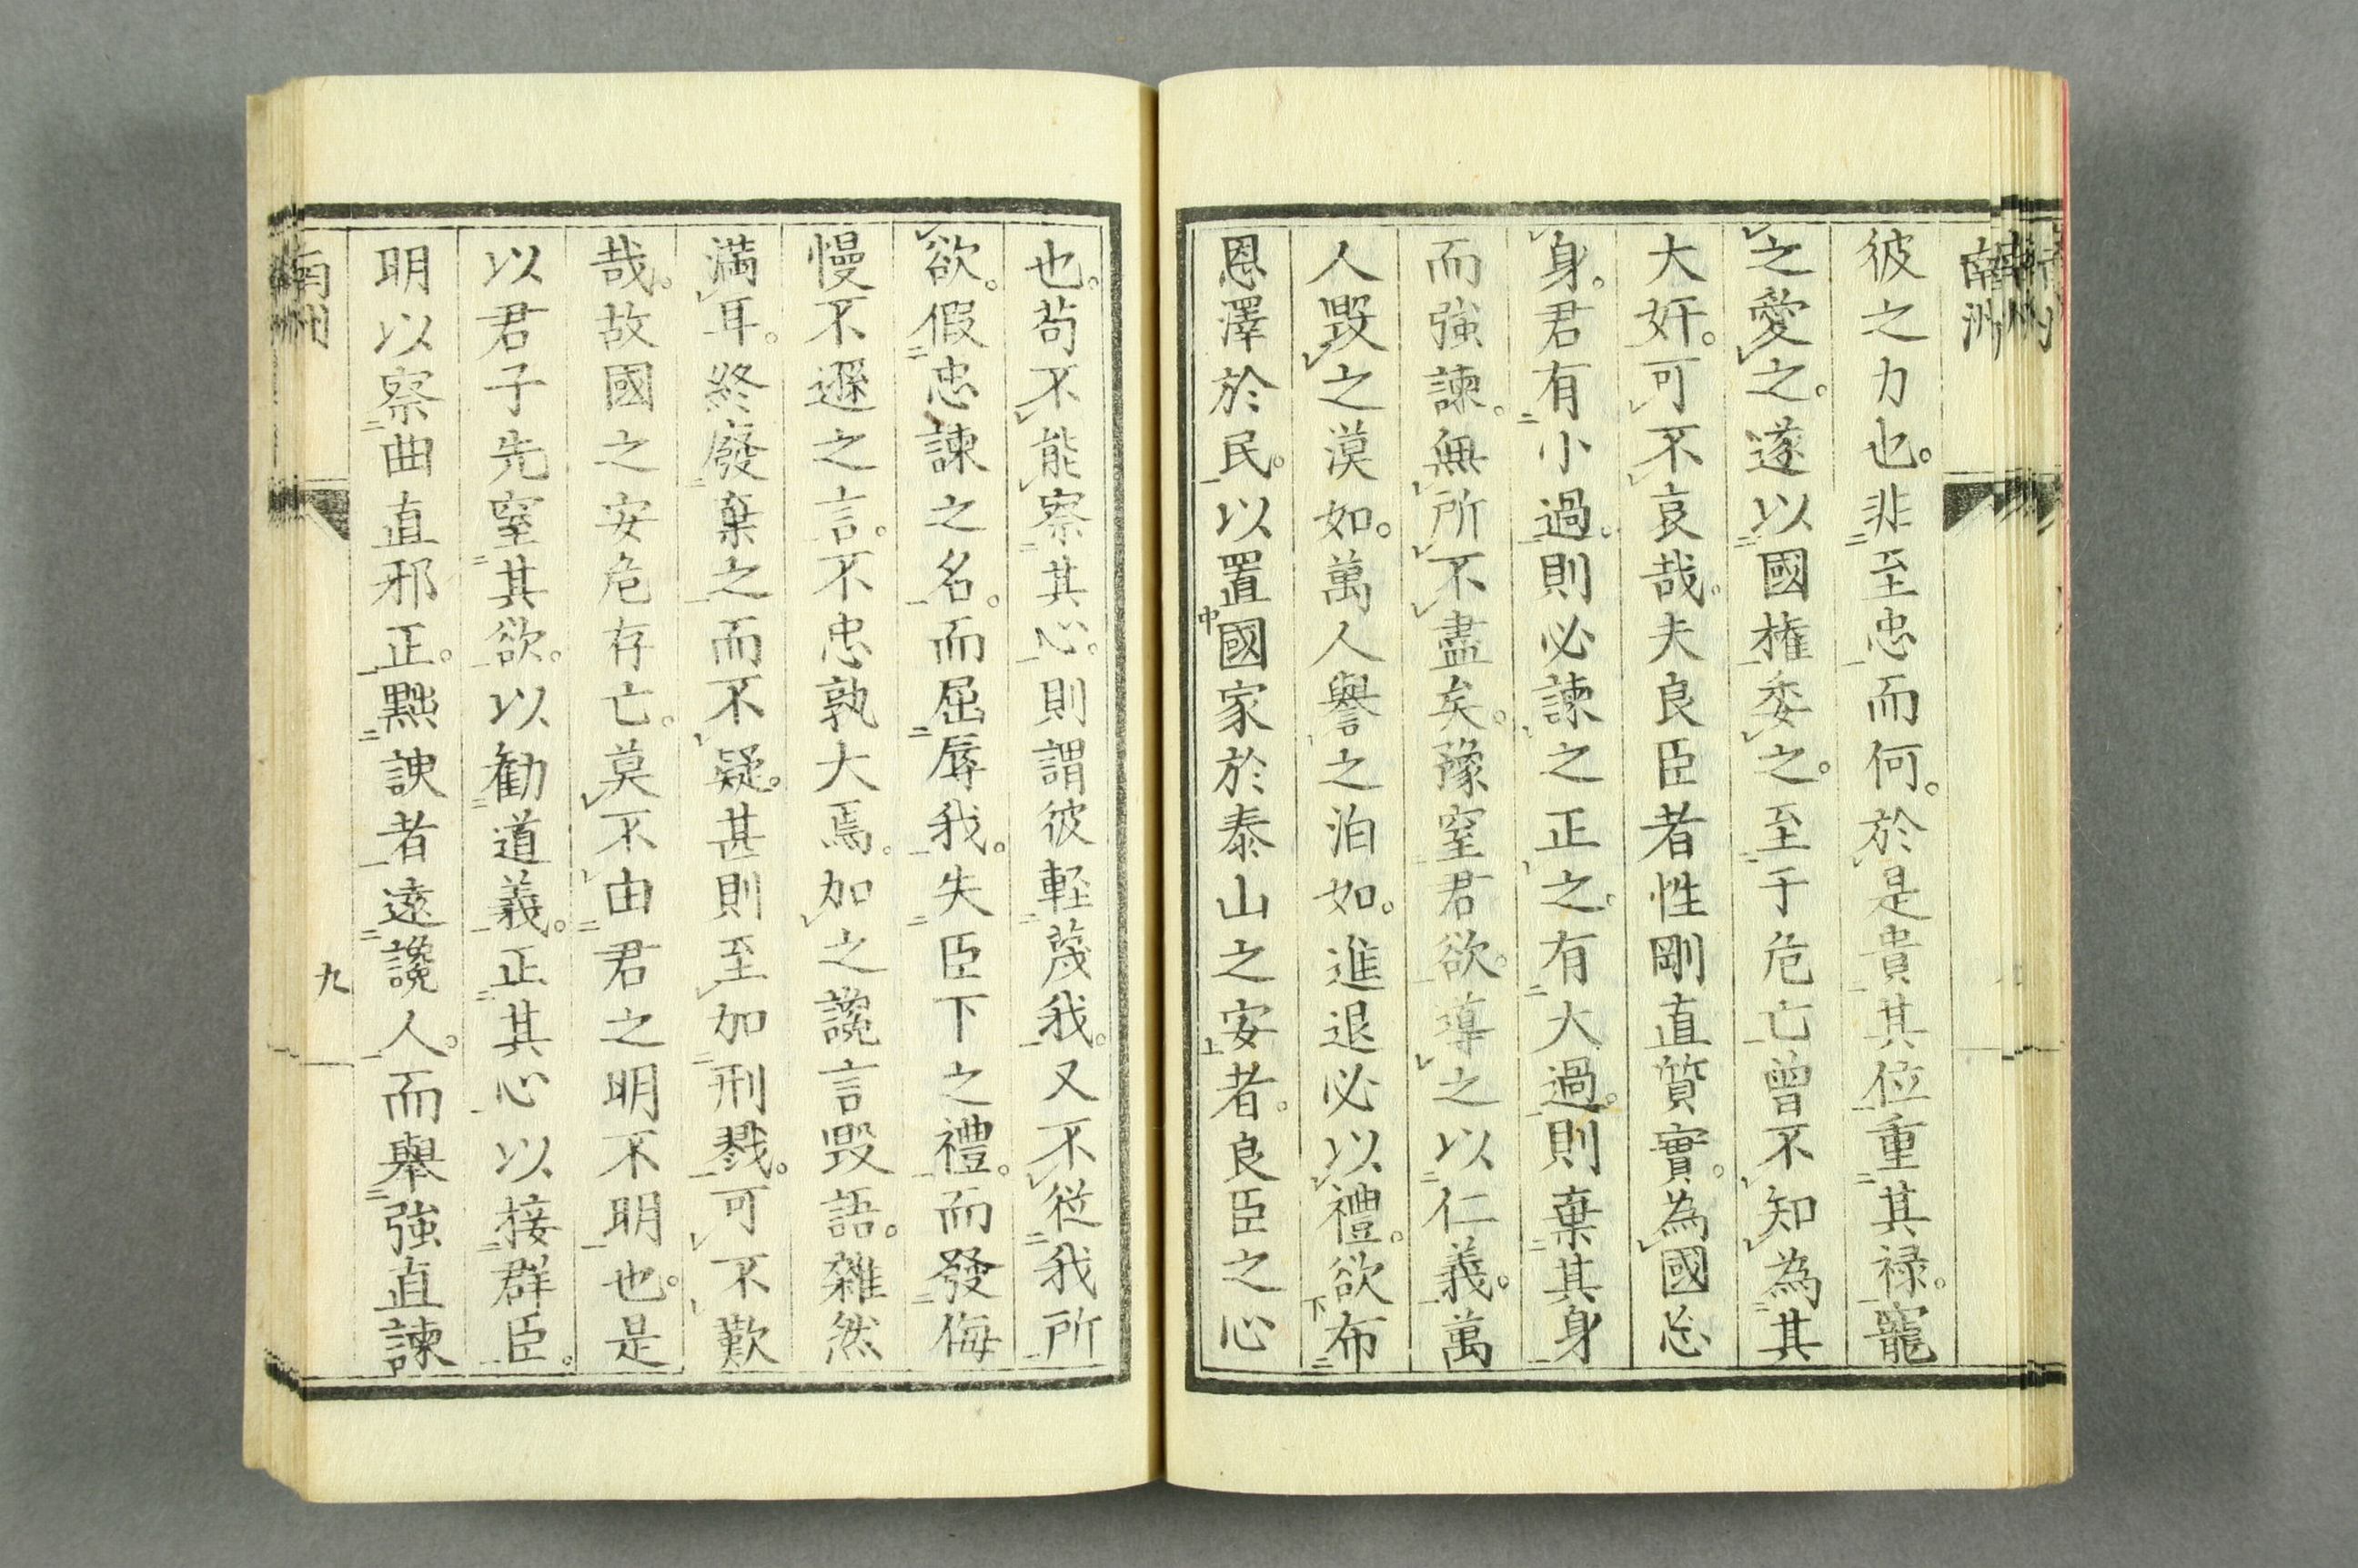 南洲
彼之力也。非至忠而何。於是貴其位重其禄。寵
之愛之。遂以國権委之。至于危亡曾不知為其
大奸。可不哀哉。夫良臣者性剛直質實。為國忘
身。君有小過。則必諫之正之。有大過。則棄其身
而強諫。無所不盡矣。豫窒君欲。導之以仁義。萬
人毀之漠如。萬人譽之泊如。進退必以禮。欲布
恩澤於民。以置國家於泰山之安者。良臣之心
也。苟不能察其心。則謂彼軽蔑我。又不従我所
欲。假忠諫之名。而屈辱我。失臣下之禮。而發侮
慢不遜之言。不忠孰大焉。加之讒言毀語。雜然
満耳。終廢棄之而不疑。甚則至加刑戮。可不歎
哉。故國之安危存亡。莫不由君之明不明也。是
以君子先窒其欲。以勧道義。正其心以接群臣。
明以察曲直邪正。黜諛者遠讒人。而舉強直諫
南洲
九